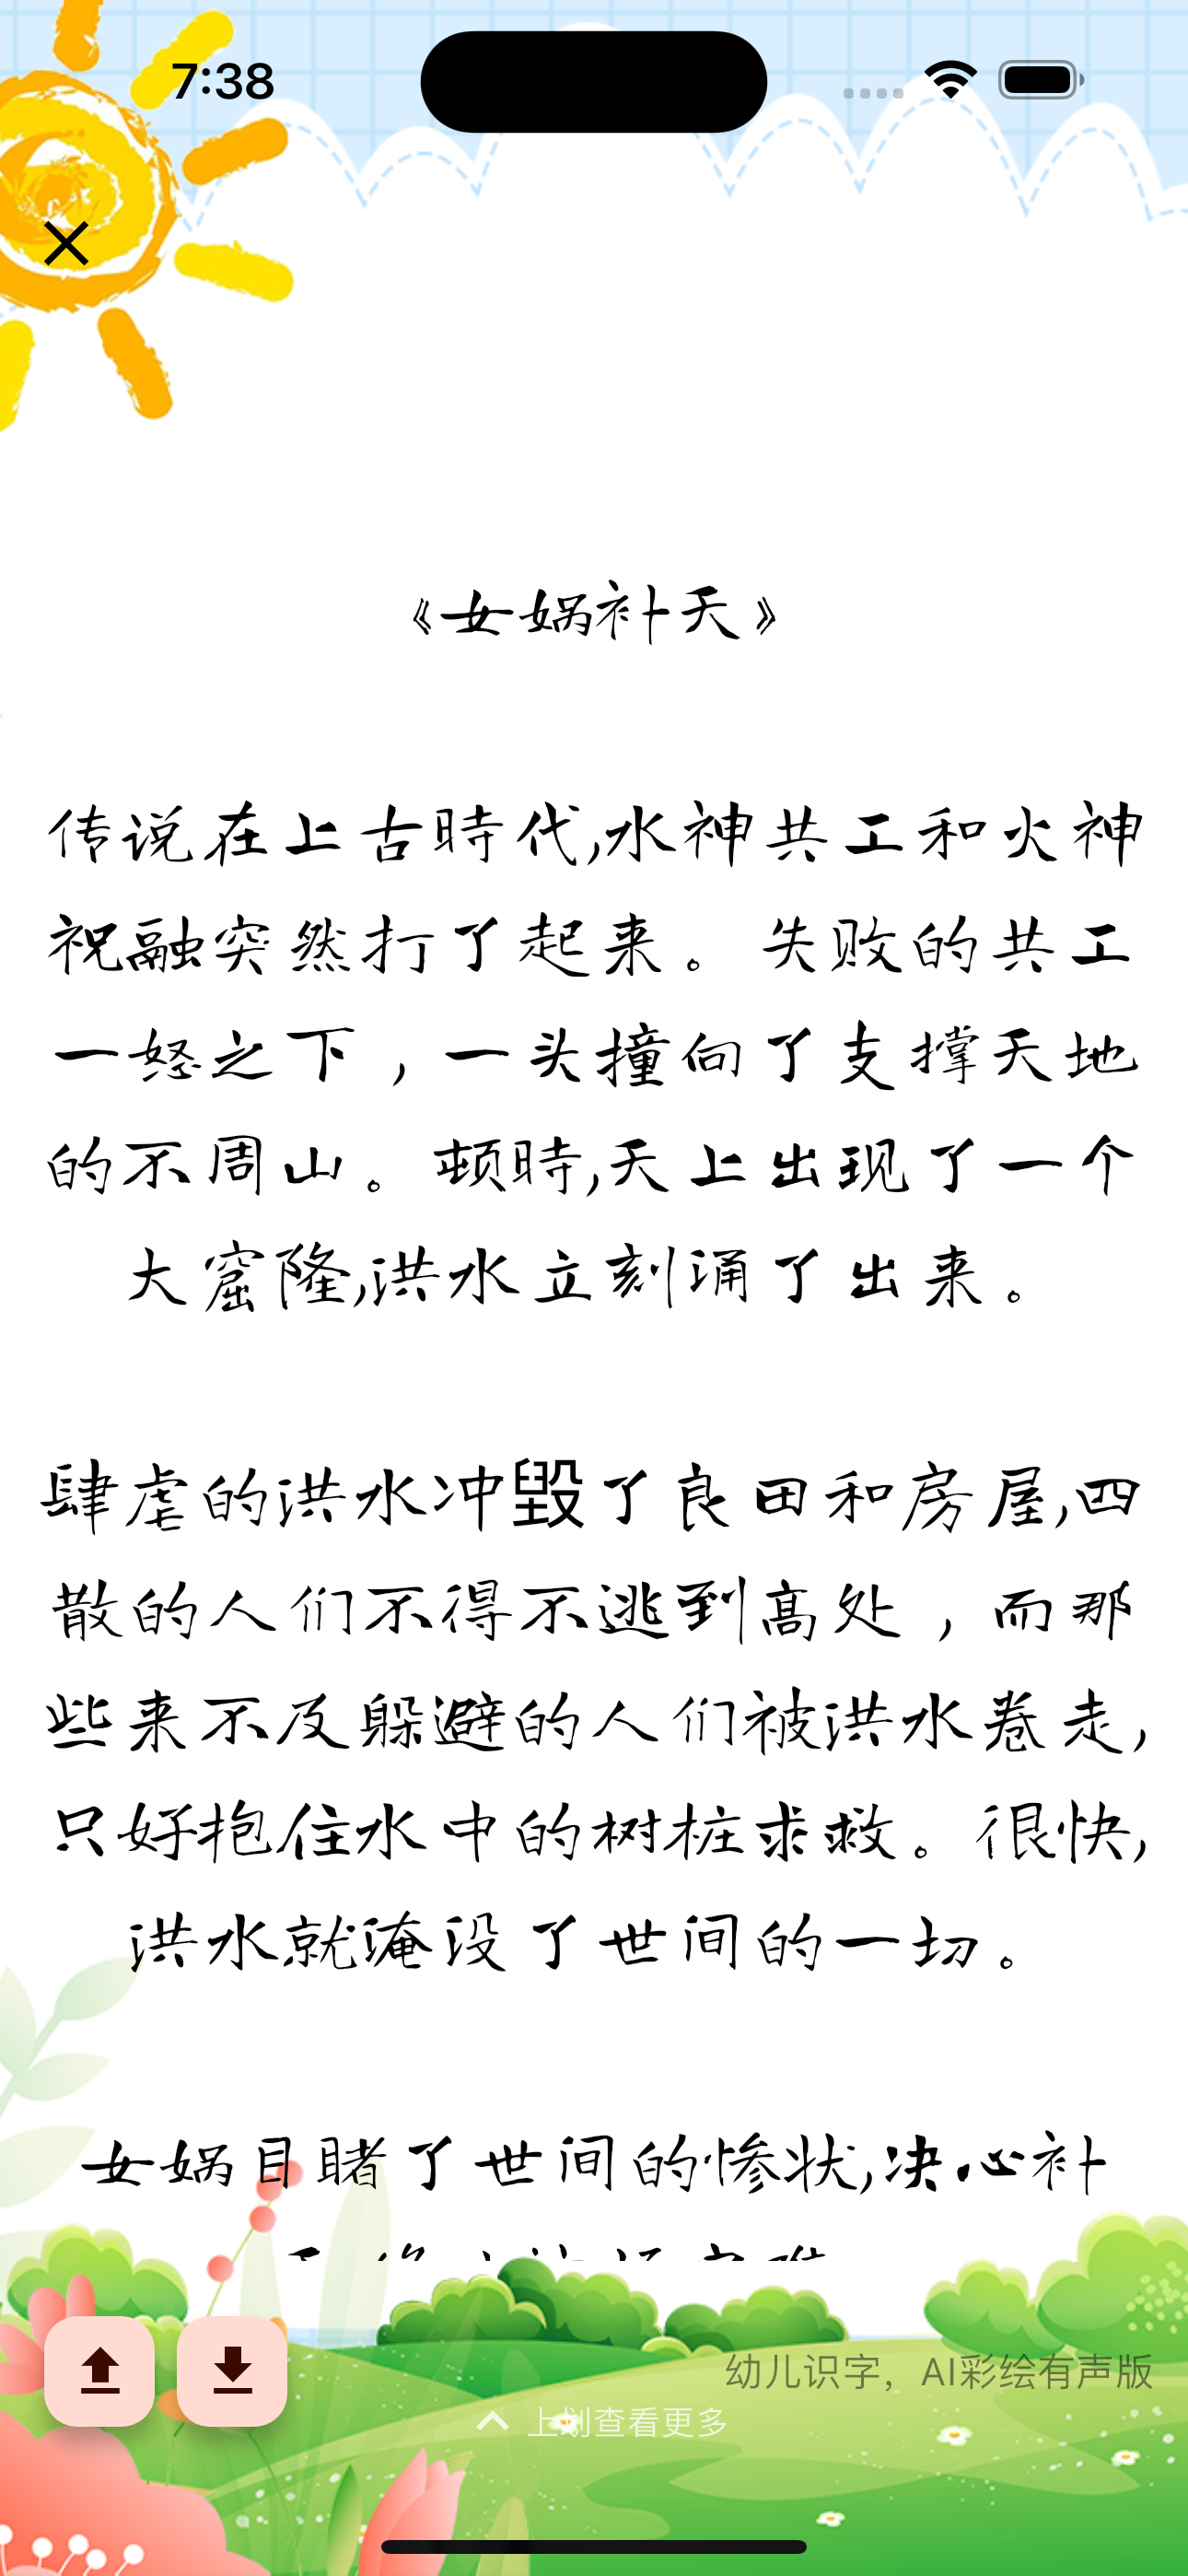 7:38
《女娲补天》
传说在上古時代,水神共工和火神
祝融突然打了起来。失败的共工
一怒之下，一头撞向了支撑天地
的不周山。顿時,天上出现了一个
大窟隆,洪水立刻涌了出来。
肆虐的洪水冲毀了良田和房屋,四
散的人们不得不逃到高处，而那
些来不及躲避的人们被洪水卷走,
只好抱住水中的树桩求救。很快,
洪水就淹没了世间的一切。
女娲目睹了世间的惨状,决心补
幼儿识字，AI彩绘有声版
上划查看更多